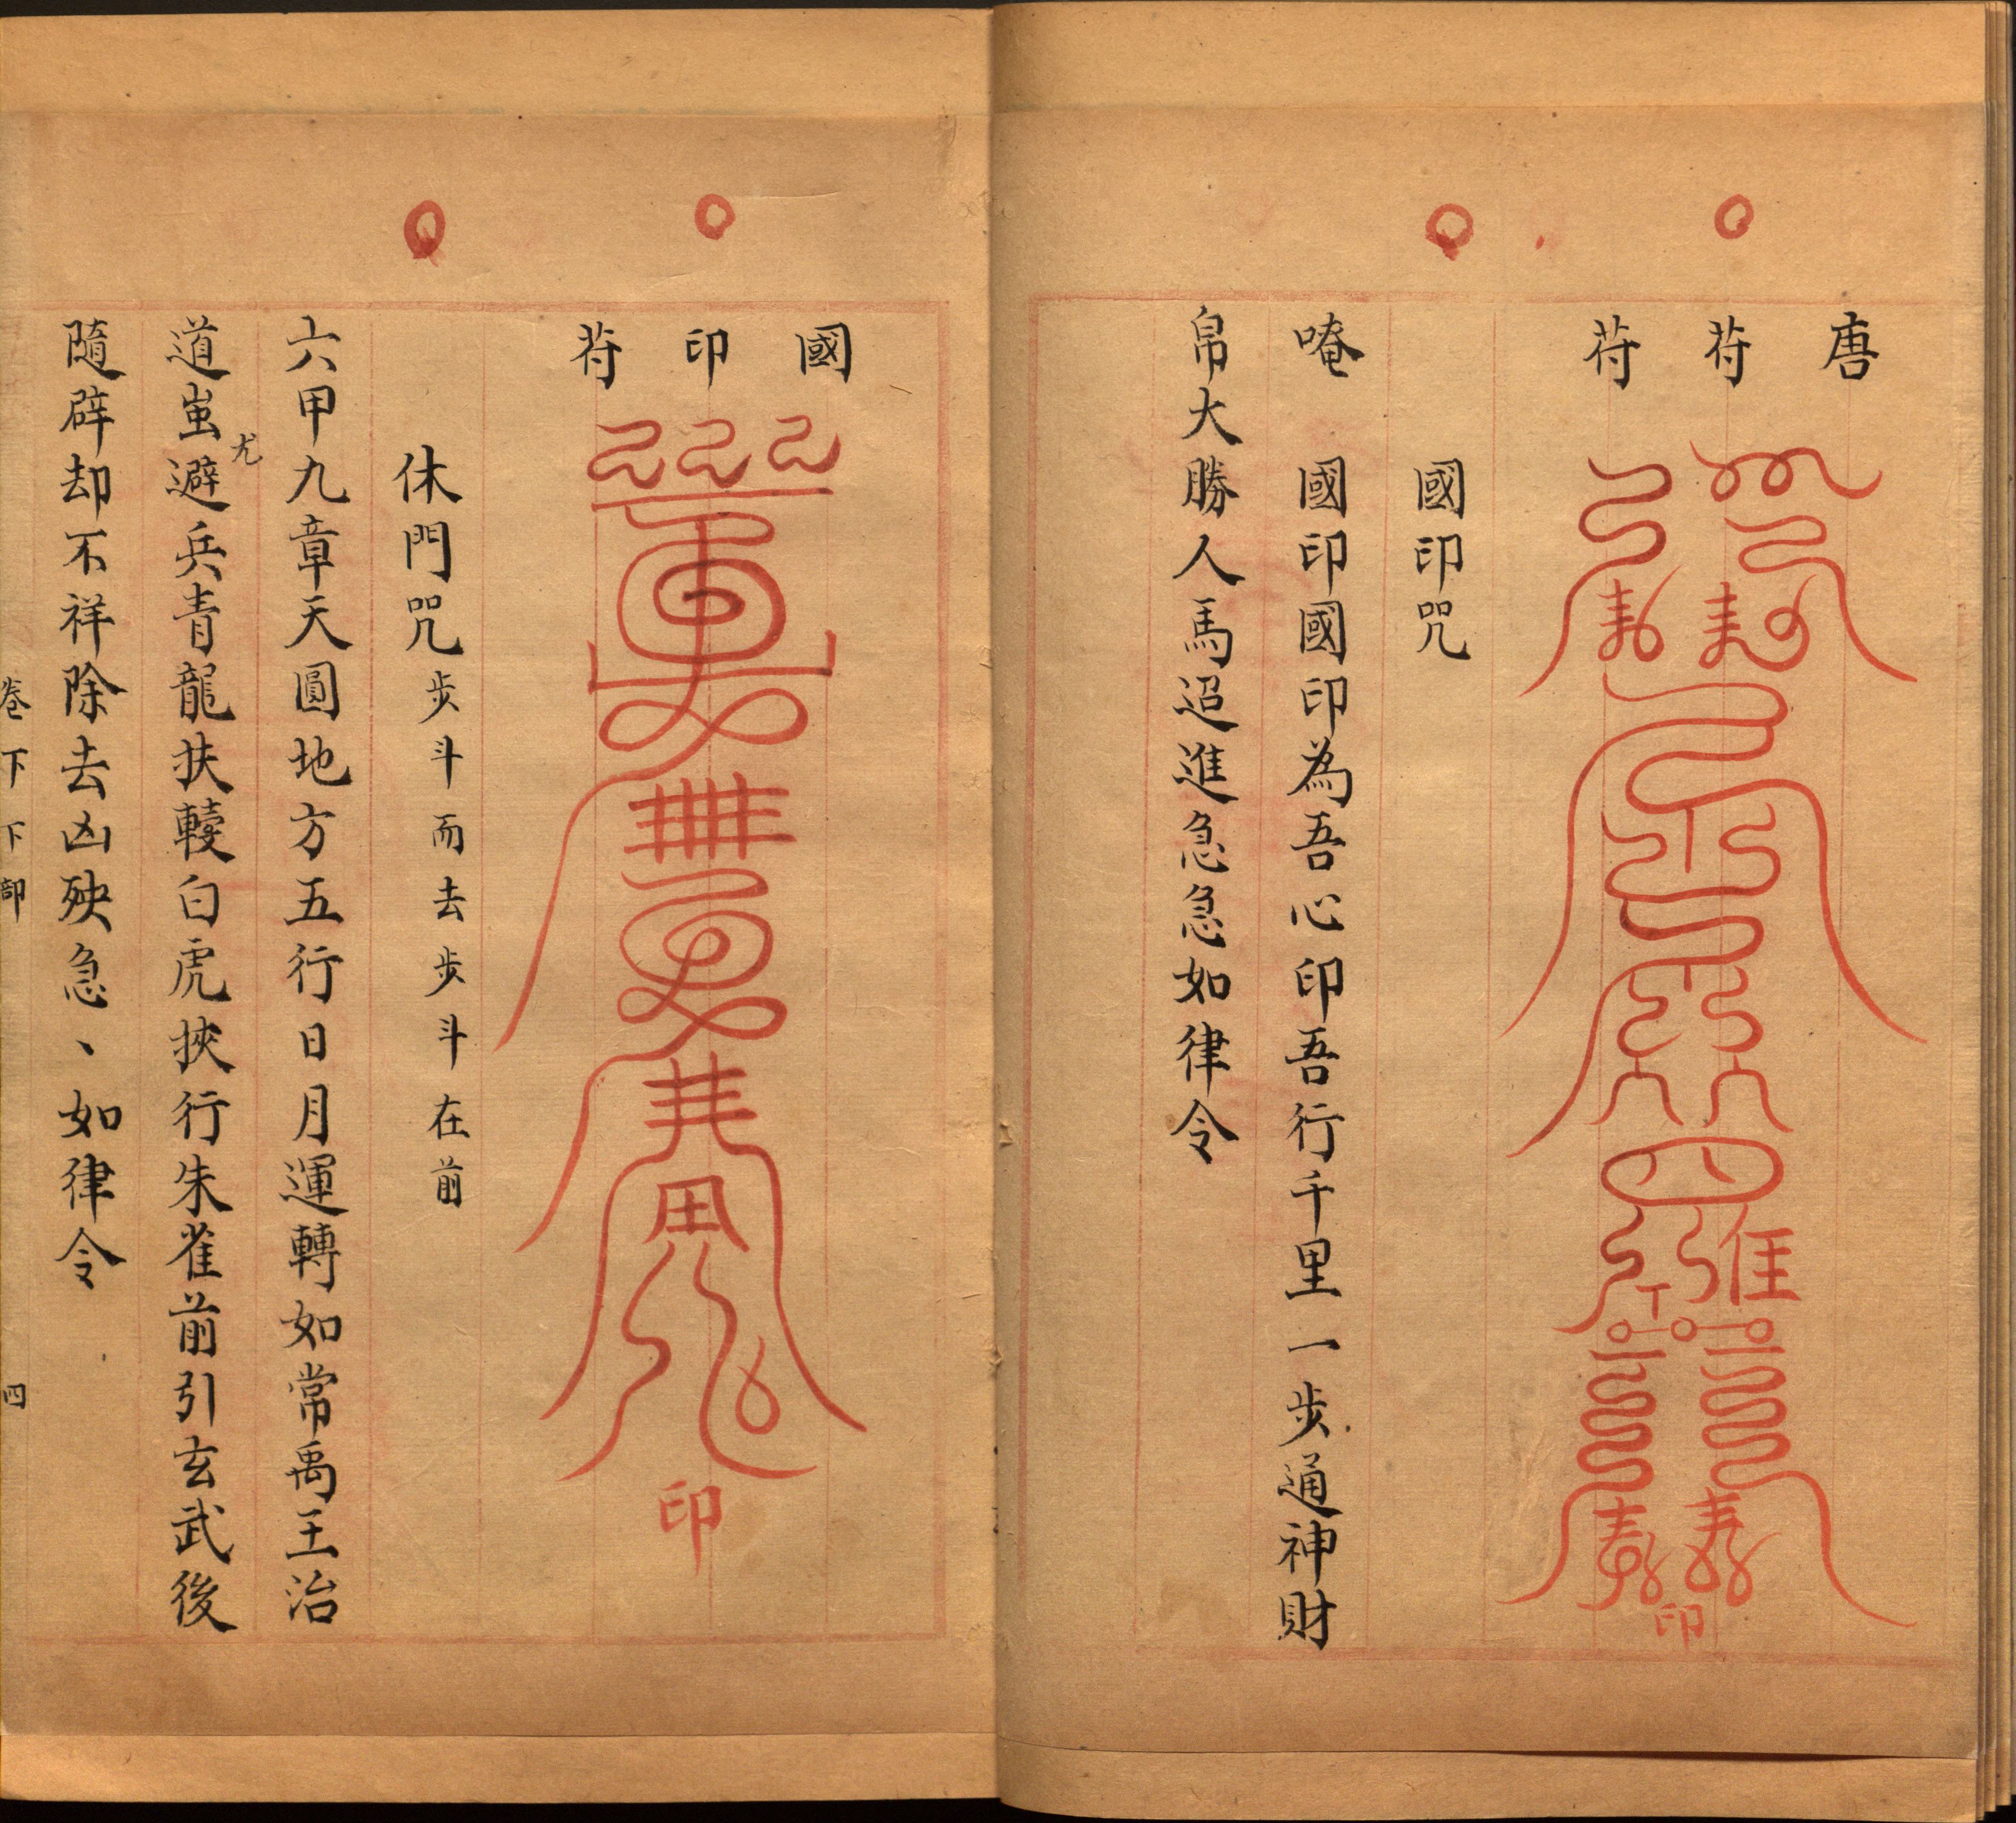 唐苻苻
印
國印咒
唵 國印國印為吾心印吾行千里一步通神財
帛大勝人馬迢進急急如律令
國印苻
印
休門咒 步斗而去步斗在前
六甲九章天圓地方五行日月運轉如常禹王治
道蚩尤避兵青龍扶轅白虎挾行朱雀前引玄武後
隨辟却不祥除去凶殃急、如律令
卷下下部 四